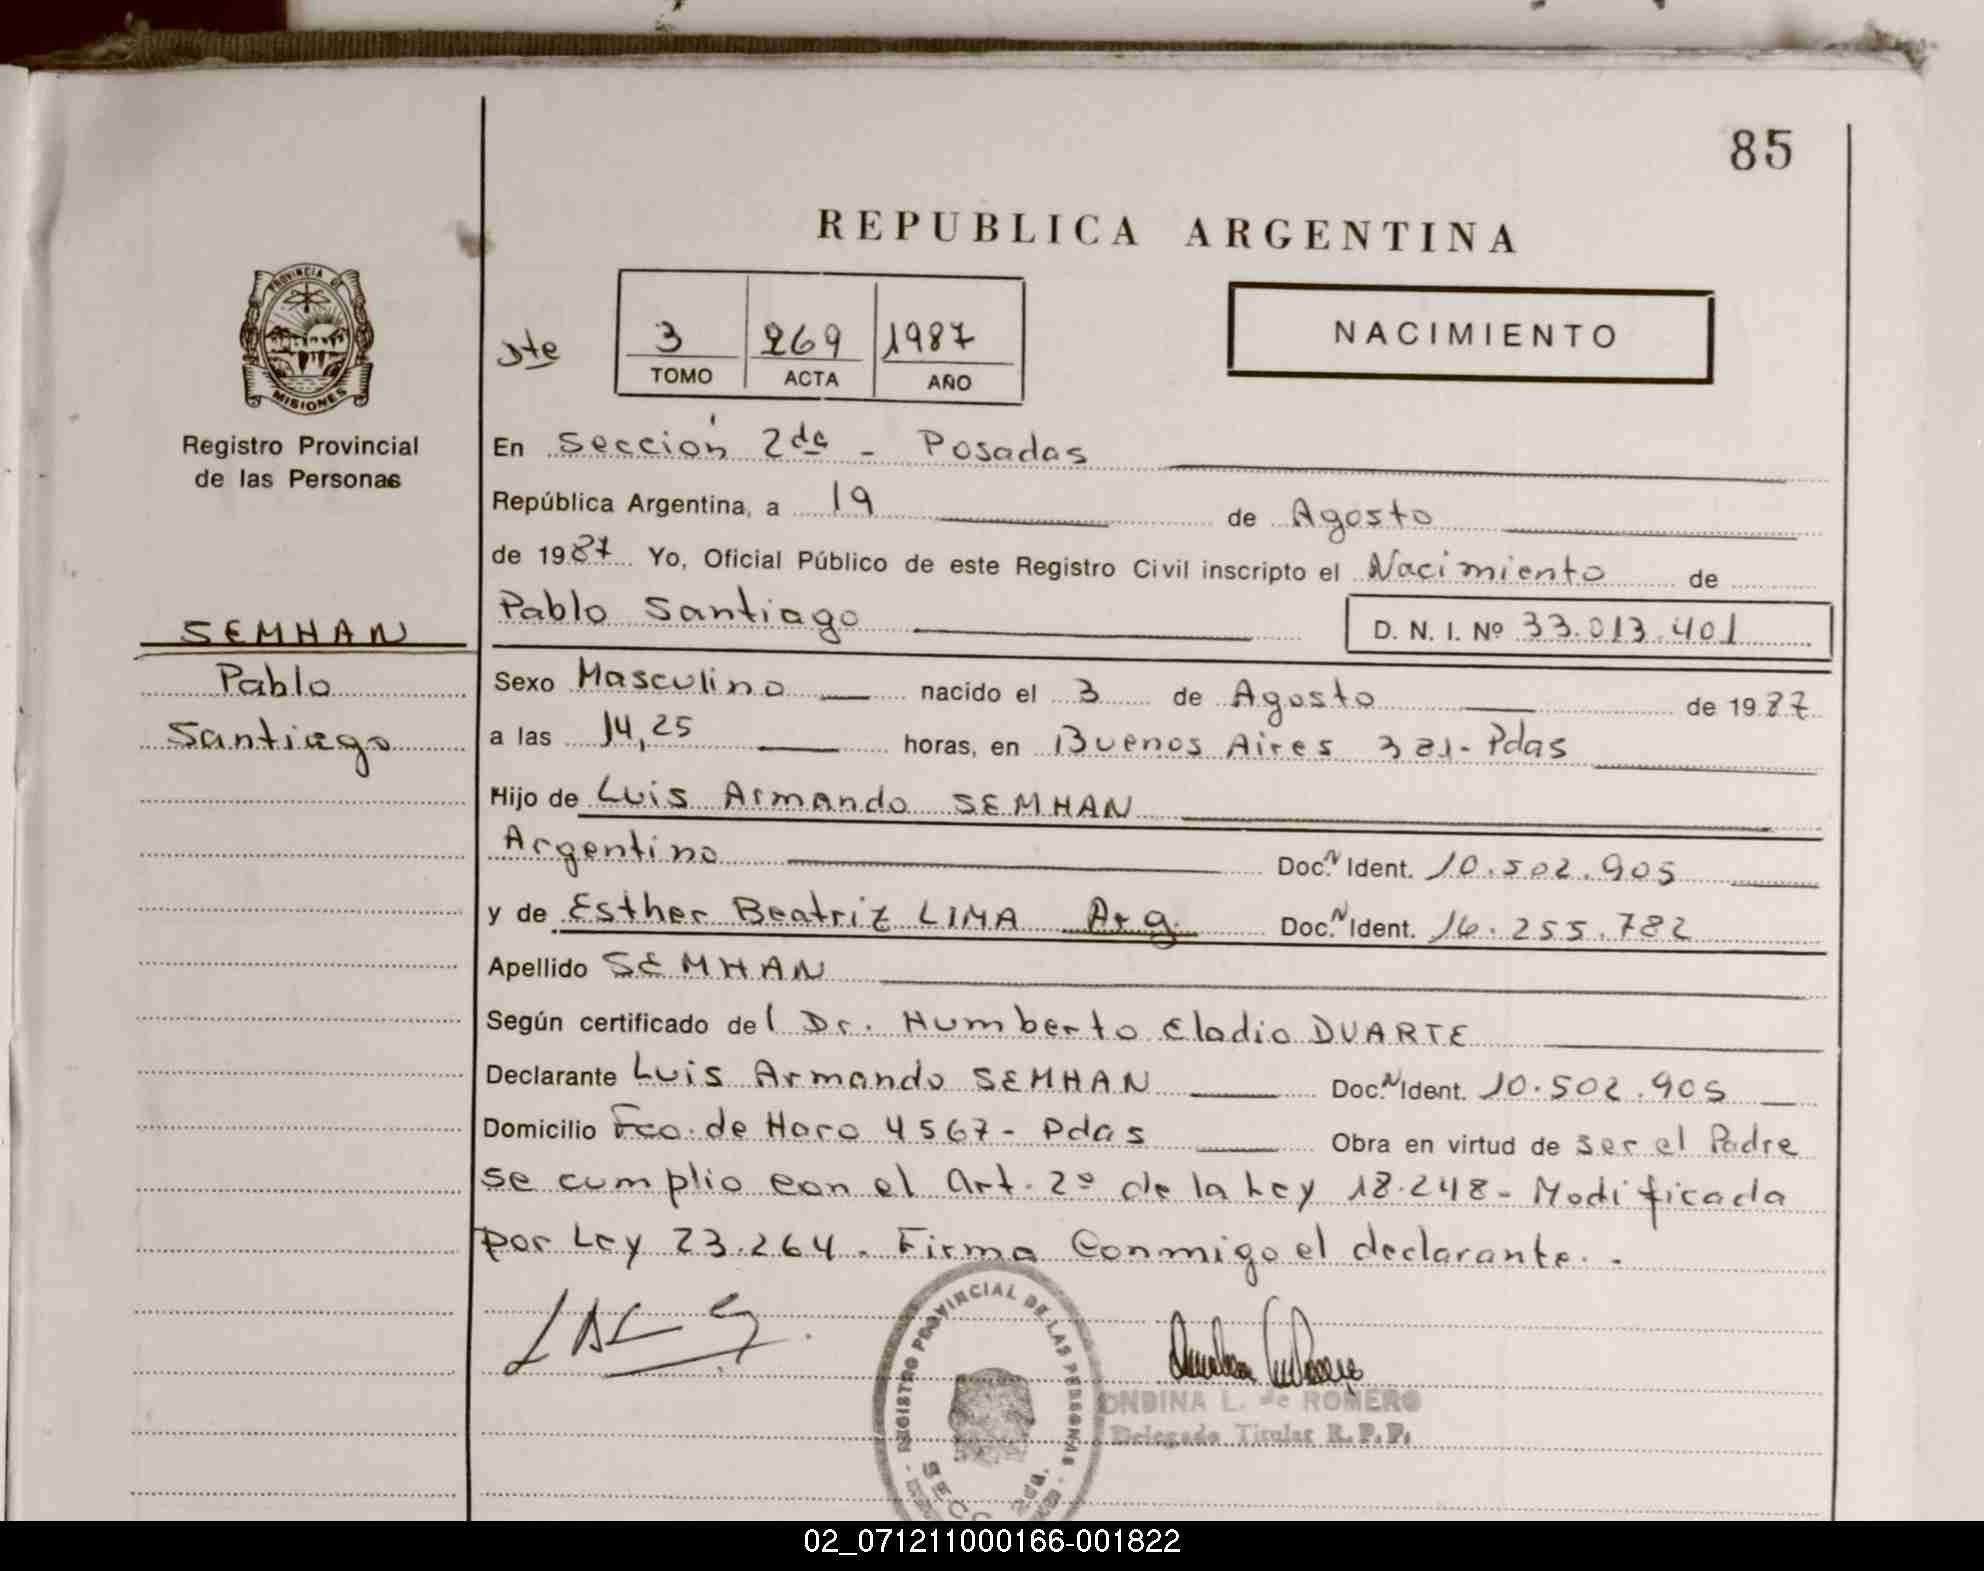 85
REPUBLICA ARGENTINA
PROVINCIA DE
MISIONES
Registro Provincial
de las Personas
Jte
3 269 1987
TOMO ACTA AÑO
NACIMIENTO
En Sección 2da - Posadas
República Argentina, a 19 de Agosto
de 1987 Yo, Oficial Público de este Registro Civil inscripto el Nacimiento de
Pablo Santiago D. N. I. Nº 33.013.401
SEMHAN
Pablo
Santiago
Sexo Masculino nacido el 3 de Agosto de 1987
a las 14,25 horas, en Buenos Aires 321- Pdas
Hijo de Luis Armando SEMHAN
Argentino Doc. N Ident. 10.502.905
y de Esther Beatriz LIMA Arg. Doc. N Ident. 16.255.782
Apellido SEMHAN
Según certificado del Dr. Humberto Eladio DUARTE
Declarante Luis Armando SEMHAN Doc. N Ident. 10.502.905
Domicilio Fco. de Haro 4567- Pdas Obra en virtud de ser el Padre
se cumplio con el Art. 2º de la Ley 18.248- Modificada
por Ley 23.264. Firma Conmigo el declarante. -
REGISTRO PROVINCIAL DE LAS PERSONAS
ONDINA L. de ROMERO
Delegada Titular R.P.P.
02_071211000166-001822